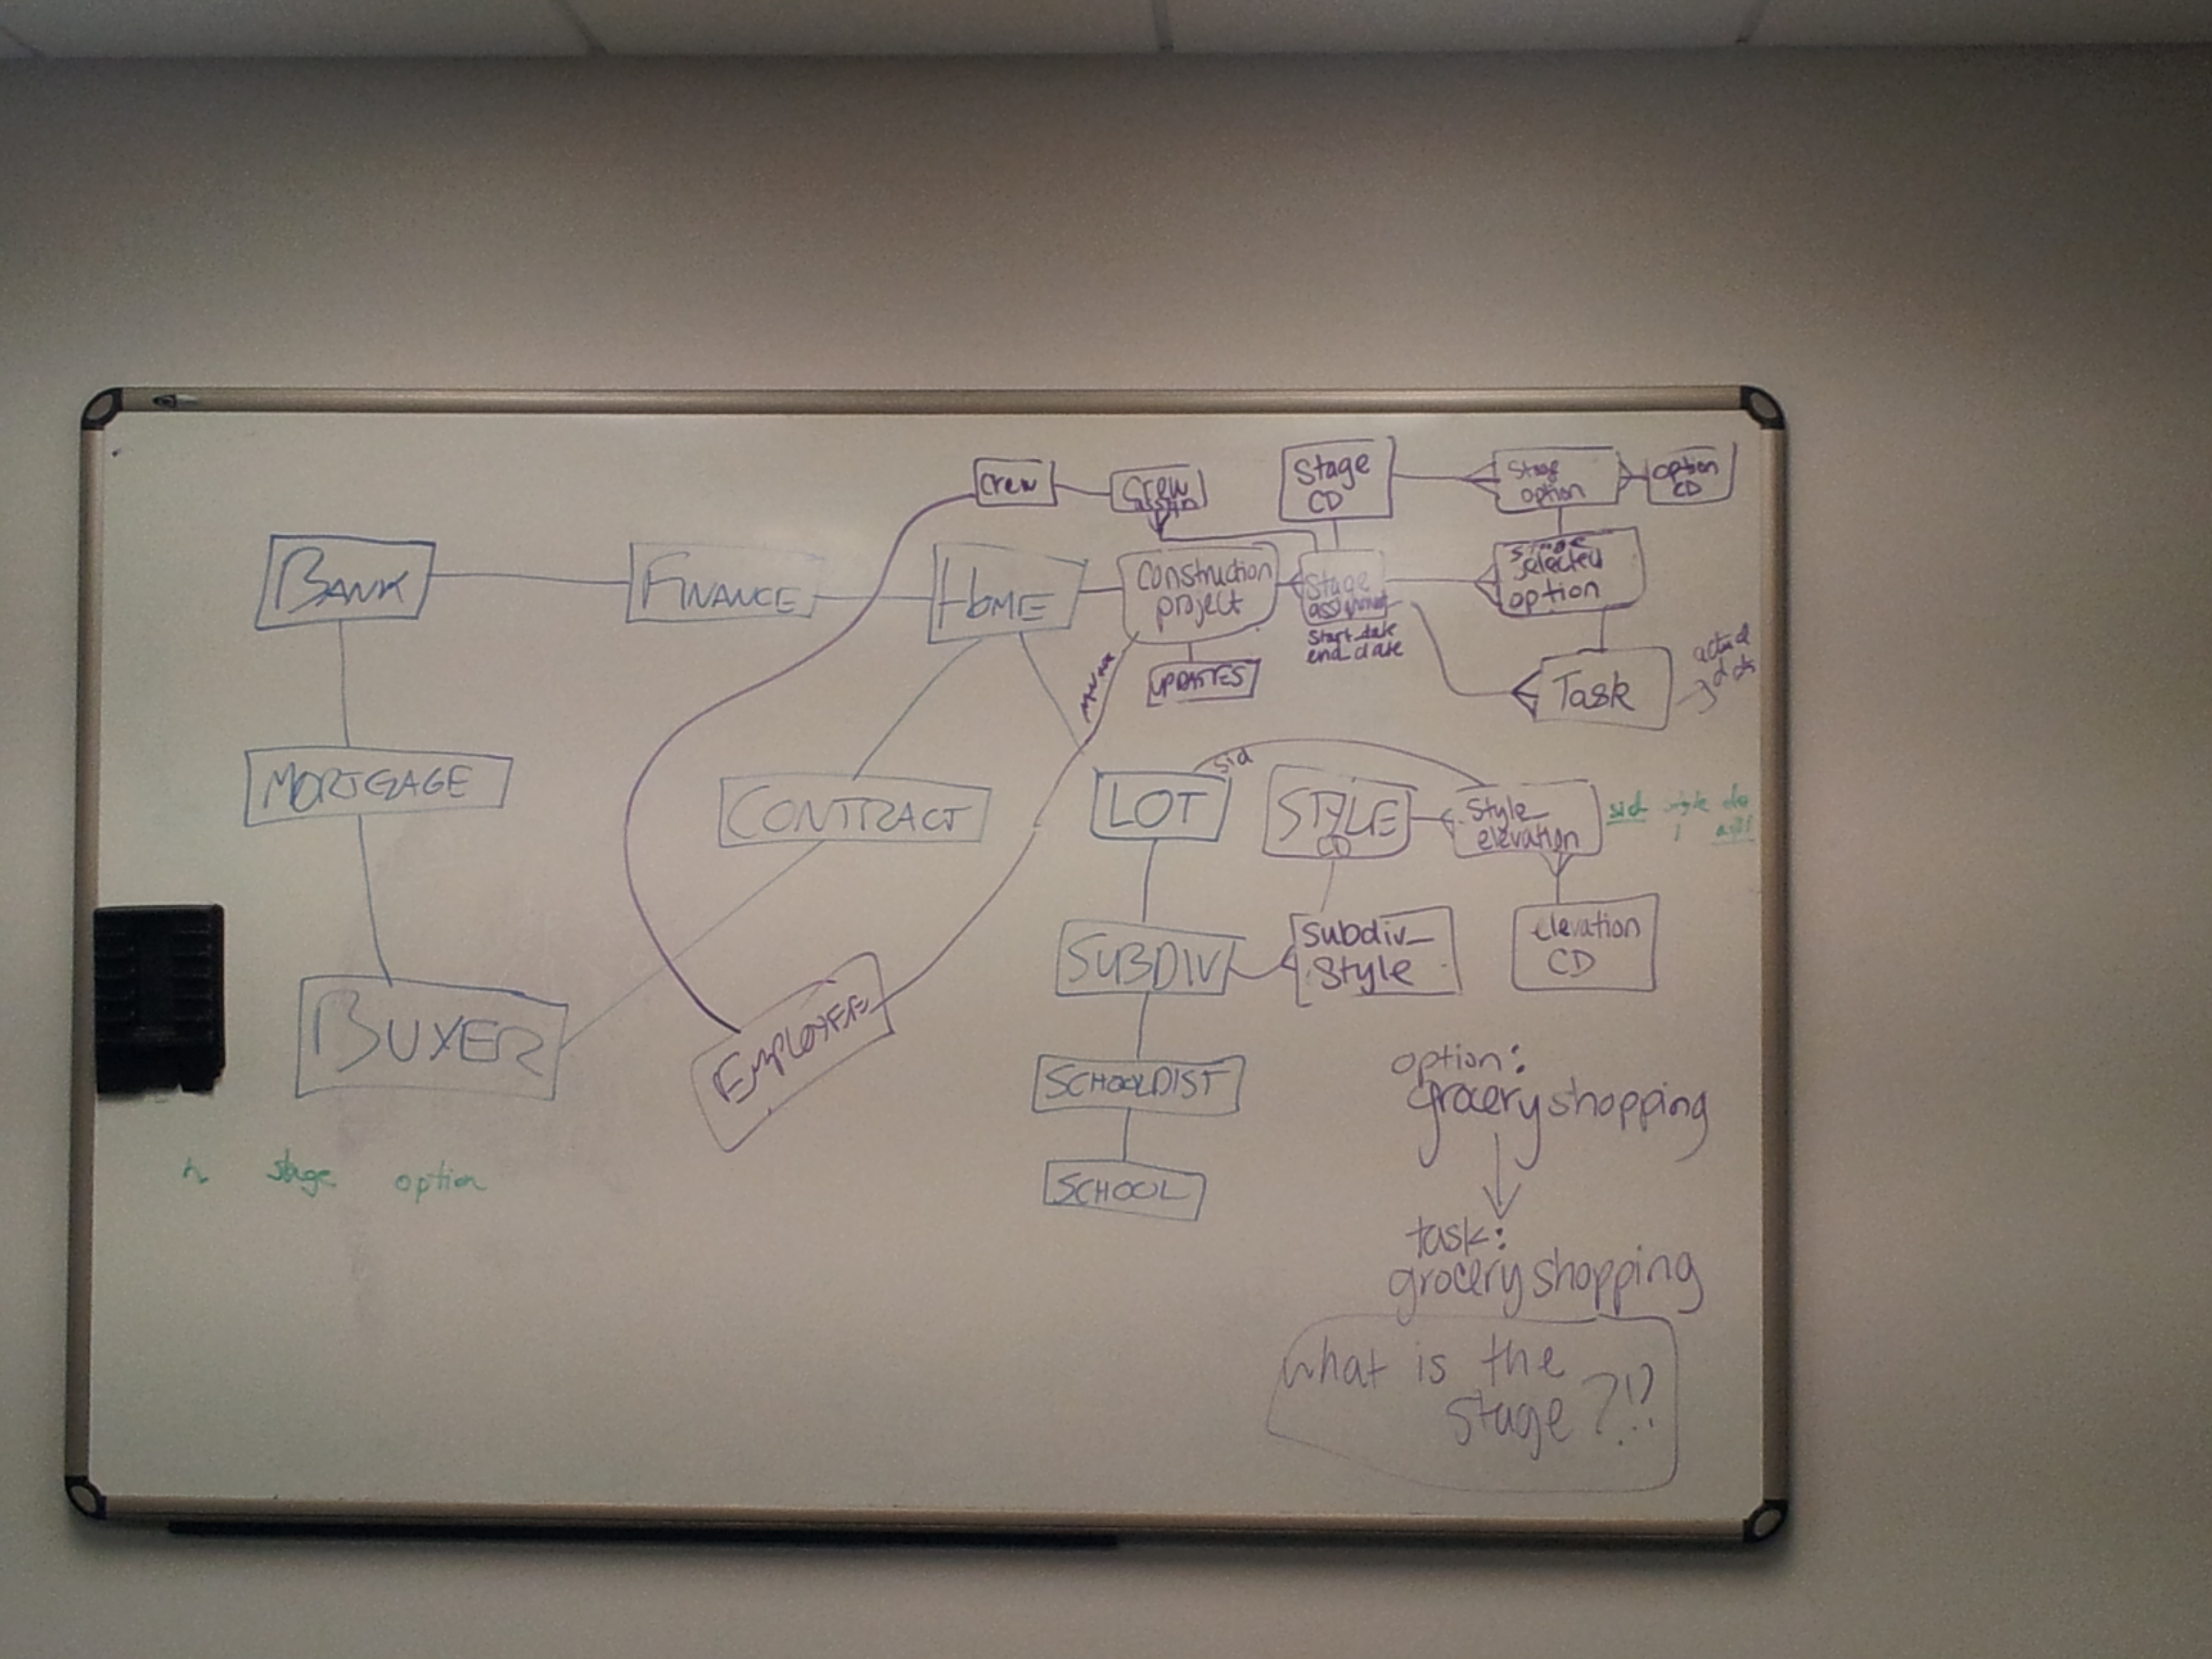 crew
Crew
assgn
Stage
CD
Stage
option
option
CD
BANK
FINANCE
HOME
construction
project
Stage
assignment
start_date
end_date
selected
option
UPDATES
Task
actual
MORTGAGE
CONTRACT
LOT
sid
STYLE
CD
Style_
elevation
sid style
SUBDIV
subdiv_
style
elevation
CD
BUYER
EMPLOYEE
SCHOOLDIST
SCHOOL
stage option
option:
grocery shopping
task:
grocery shopping
what is the
stage ?!?